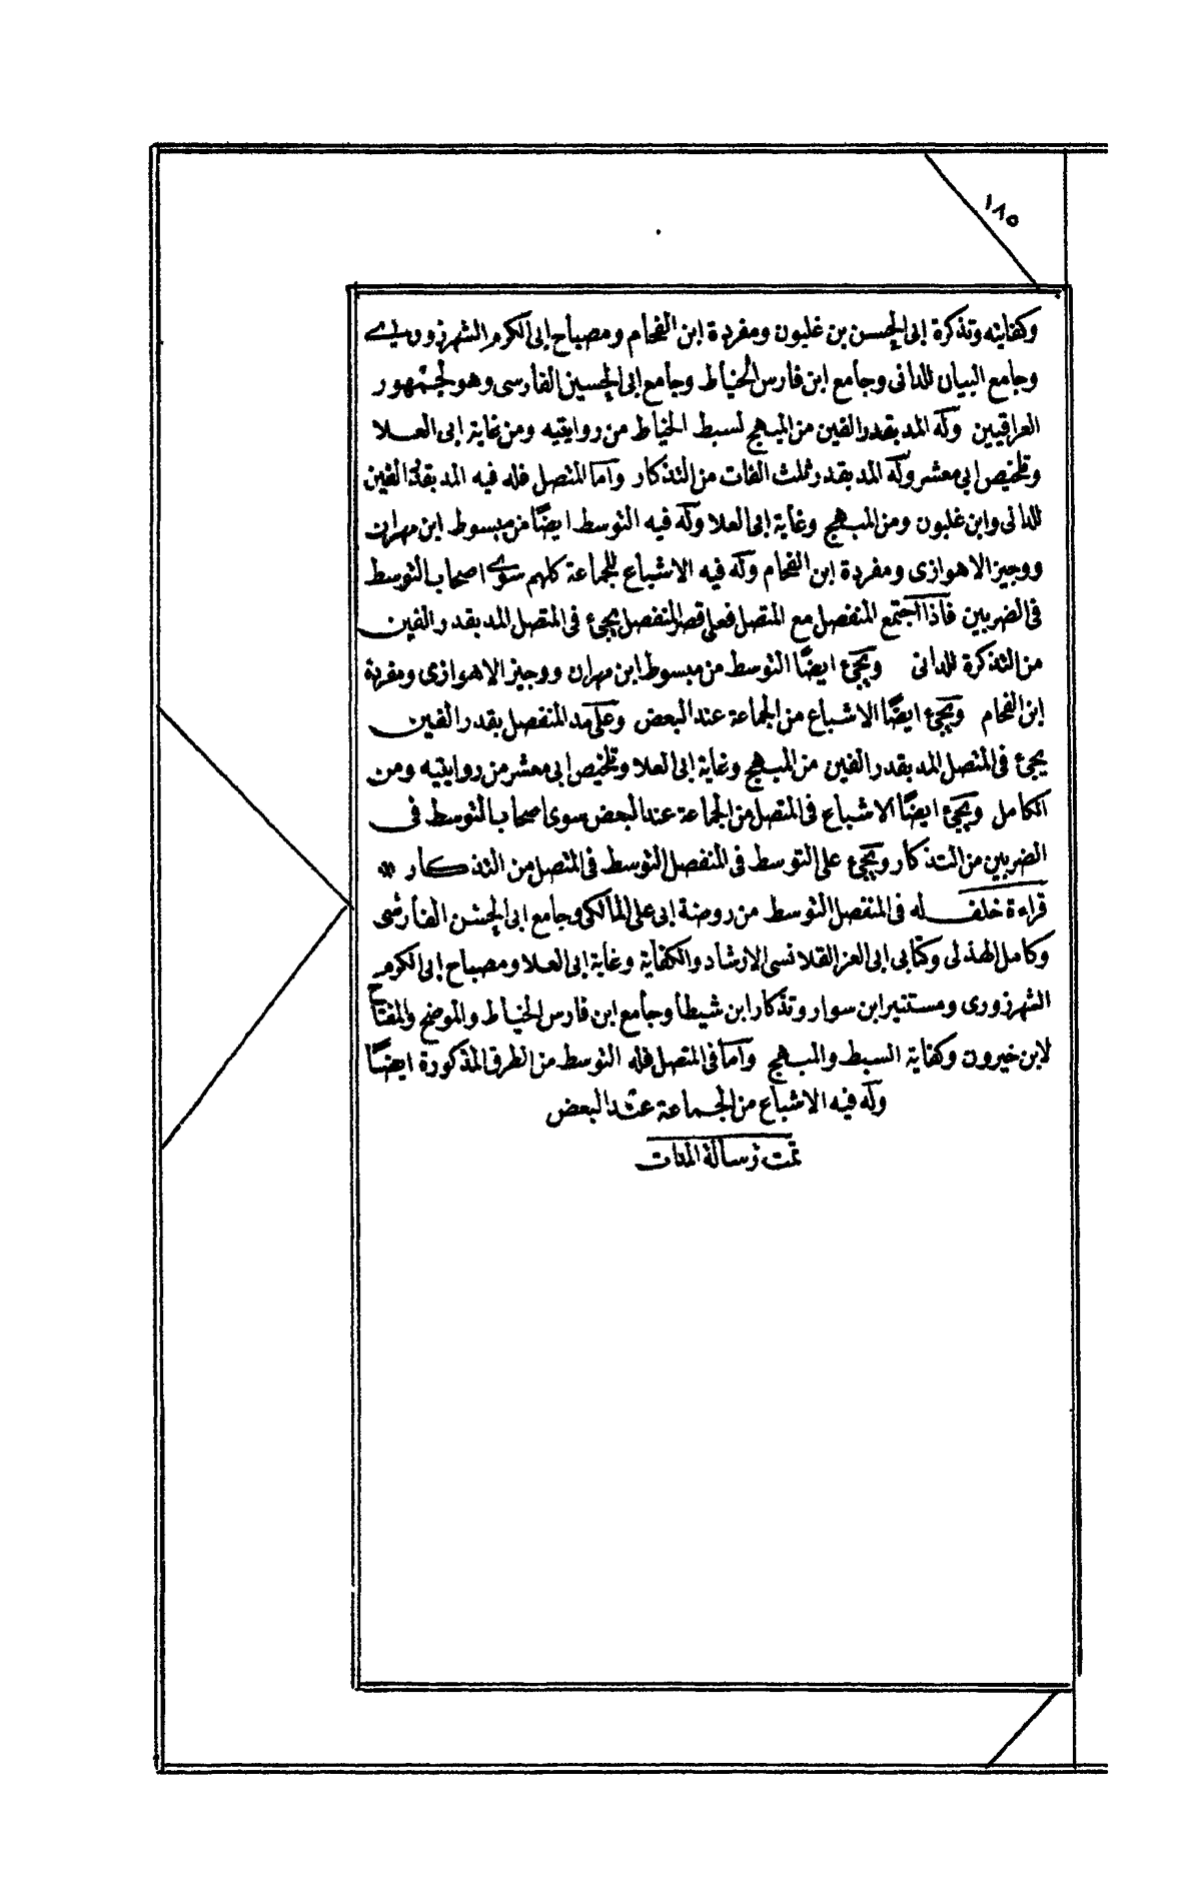 ١٨٥
وكفايته وتذكرة ابى الحسن بن غلبون ومفردة ابن الفحام ومصباح ابى الكرم الشهرزورى
وجامع البيان للدانى وجامع ابن فارس الخياط وجامع ابى الحسين الفارسى وهو لجمهور
العراقيين وله المد بقدر الفين من المبهج لسبط الخياط من روايتيه ومن غاية ابى العلا
وتلخيص ابى معشر وله المد بقدر ثلث الفات من التذكار واما المتصل فله فيه المد بقدر الفين
للدانى وابن غلبون ومن المبهج وغاية ابى العلا وله فيه التوسط ايضًا من مبسوط ابن مهران
ووجيز الاهوازى ومفردة ابن الفحام وله فيه الاشباع للجماعة كلهم سوى اصحاب التوسط
فى الضربين فاذا اجتمع المنفصل مع المتصل فعلى قصر المنفصل يجئ فى المتصل المد بقدر الفين
من التذكرة للدانى ويجئ ايضًا التوسط من مبسوط ابن مهران ووجيز الاهوازى ومفردة
ابن الفحام ويجئ ايضًا الاشباع من الجماعة عند البعض وعلى مد المنفصل بقدر الفين
يجئ فى المتصل المد بقدر الفين من المبهج وغاية ابى العلا وتلخيص ابى معشر من روايتيه ومن
الكامل ويجئ ايضًا الاشباع فى المتصل من الجماعة عند البعض سوى اصحاب التوسط فى
الضربين من التذكار ويجئ على التوسط فى المنفصل التوسط فى المتصل من التذكار *
قراءة خلف له فى المنفصل التوسط من روضة ابى على المالكى وجامع ابى الحسن الفارسى
وكامل الهذلى وكتابى ابى العز القلانسى الارشاد والكفاية وغاية ابى العلا ومصباح ابى الكرم
الشهرزورى ومستنير ابن سوار وتذكار ابن شيطا وجامع ابن فارس الخياط والموضح والمفتاح
لابن خيرون وكفاية السبط والمبهج واما فى المتصل فله التوسط من الطرق المذكورة ايضًا
وله فيه الاشباع من الجماعة عند البعض
تمت رسالة المدات